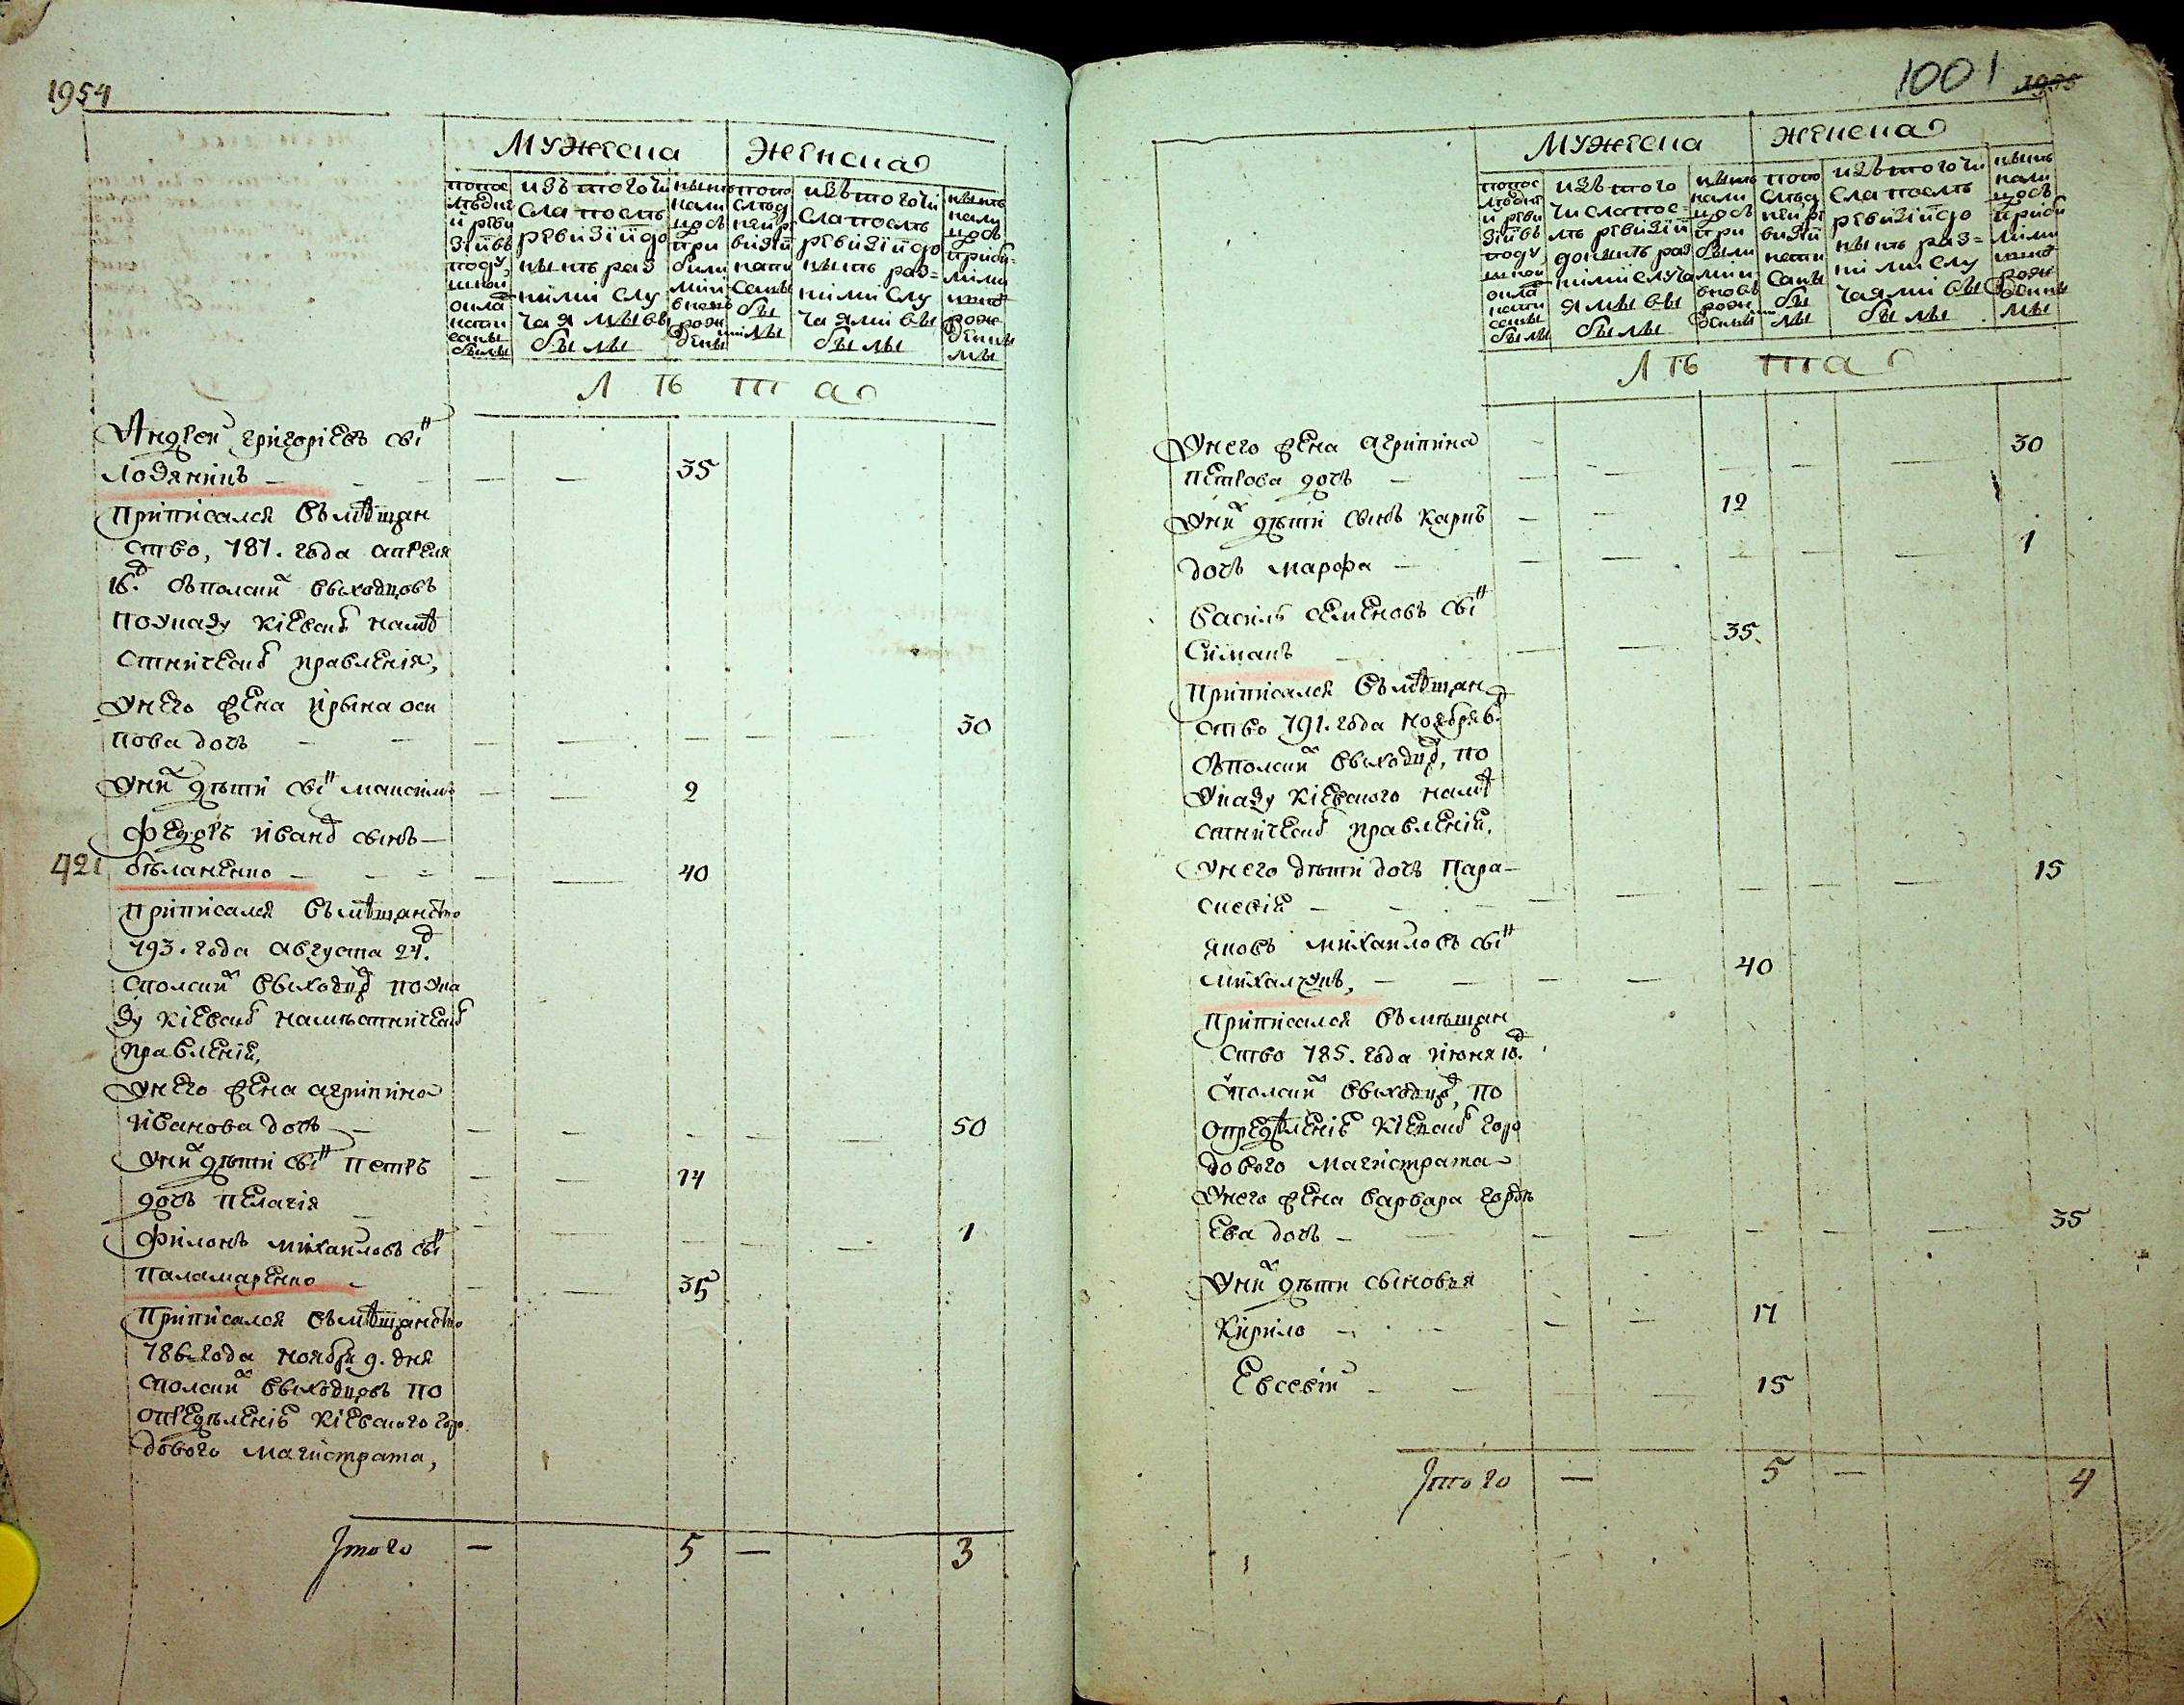 1954
Мужеска
женска
попос
лѣдне
й реви
зіи въ
поду
шной
окла
писа
ны
были
изъ того чи
сла посль
ревизіи до
нынѣ раз
ними слу
чаямы вы
былы
нынѣ
нали
цосъ
при
были
ми и
вновь
рож
дены
ми
попо
слѣд
ней ре
визіи
напи
саны
бы
лы
изъ того чи
сла посль
ревизіи до
нынѣ раз=
ними слу
чаями вы
былы
нынѣ
нали
цосъ
прибы=
лими
рож
денны
мы
Лѣта
Андрей григоріевъ сынъ
Лозянинъ — 35
Приписался въ мѣщан
ство, 787. года апреля
16д. съ полскихъ выходцовъ
по указу кіевского намѣ
стнического правленія,
У него жена ирына оси
пова дочь — 30
У нихъ дѣти сынъ максимъ — 2
Федоръ иванов сынъ —
421 бѣланенко — 40
Приписался въ мѣщанство
793. года августа 24д.
с полскихъ выходцов по ука
зу кіевского намѣстнического
правленія,
У него жена агрипина
иванова дочь — 50
У нихъ дѣти сынъ петръ — 14
дочь пелагія — 1
Филонъ михайловъ сынъ
Паламаренко — 35
Приписался въ мѣщанство
786 года ноября 9. дня
с полскихъ выходцовъ по
определенію кіевского горо
дового магистрата,
Итого — 5 — 3
1001 1955
Мужеска
женска
попос
лѣдней
й реви
зіи въ
поду
шной
окла
писа
ны
былы
изъ того
числа пос=
лѣ ревизіи
до нынѣ раз
ними случа
ямы вы
былы
нынѣ
нали
цосъ
при
были
ми и
вновь
рож
дены
ми
попо
слѣд
ней ре
визіи
напи
саны
бы
лы
изъ того чи
сла посль
ревизіи до
нынѣ раз=
ними слу
чаями вы
былы
нынѣ
нали
цосъ
прибы
лими
рож
денны
мы
Лѣта
У него жена агрипина
петрова дочь — 30
У нихъ дѣти сынъ карпъ — 12
дочь марфа — 1
Василь семеновъ сынъ
Симакъ — 35
Приписался въ мѣщан
ство 791. года ноября 6д.
съ полскихъ выходцов, по
указу кіевского намѣ
стнического правленія,
У него дѣти дочь Пара—
скевія — 15
яковъ михайловъ сынъ
михалчукъ, — 40
Приписался въ мѣщан
ство 785. года июня 10д.
с полскихъ выходцов, по
определеніе кіевского горо
дового магистрата
У него жена варвара гордѣ
ева дочь — 35
У нихъ дѣти сыновья
Кирило — 17
Евсевій — 15
Итого — 5 — 4